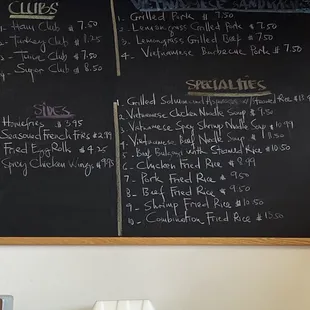 CLUBS
1 - Ham Club $ 7.50
2 - Turkey Club
3 - Tuna Club $ 7.50
4 - Super Club $ 8.50
SIDES
Homefries $ 3.95
Seasoned French fries $ 2.99
Fried Egg Rolls $ 4.25
Spicy Chicken Wings
VIETNAMESE SANDWICH
1. Grilled Pork $ 7.50
2. Lemongrass Grilled Pork $ 7.50
3. Lemongrass Grilled Beef $ 7.50
4 - Vietnamese Barbecue Pork $ 7.50
SPECIALTIES
1. Grilled Salmon Asparagus w/ Steamed Rice
2. Vietnamese Chicken Noodle Soup
3. Vietnamese Spicy Shrimp Noodle Soup $ 10.99
4. Vietnamese Beef Noodle Soup
5. Beef Bulgogi with Steamed Rice $ 10.50
6 - Chicken Fried Rice $ 8.99
7 - Pork Fried Rice $ 9.50
8 - Beef Fried Rice $ 9.50
9 - Shrimp Fried Rice $ 10.50
10 - Combination Fried Rice $ 13.50